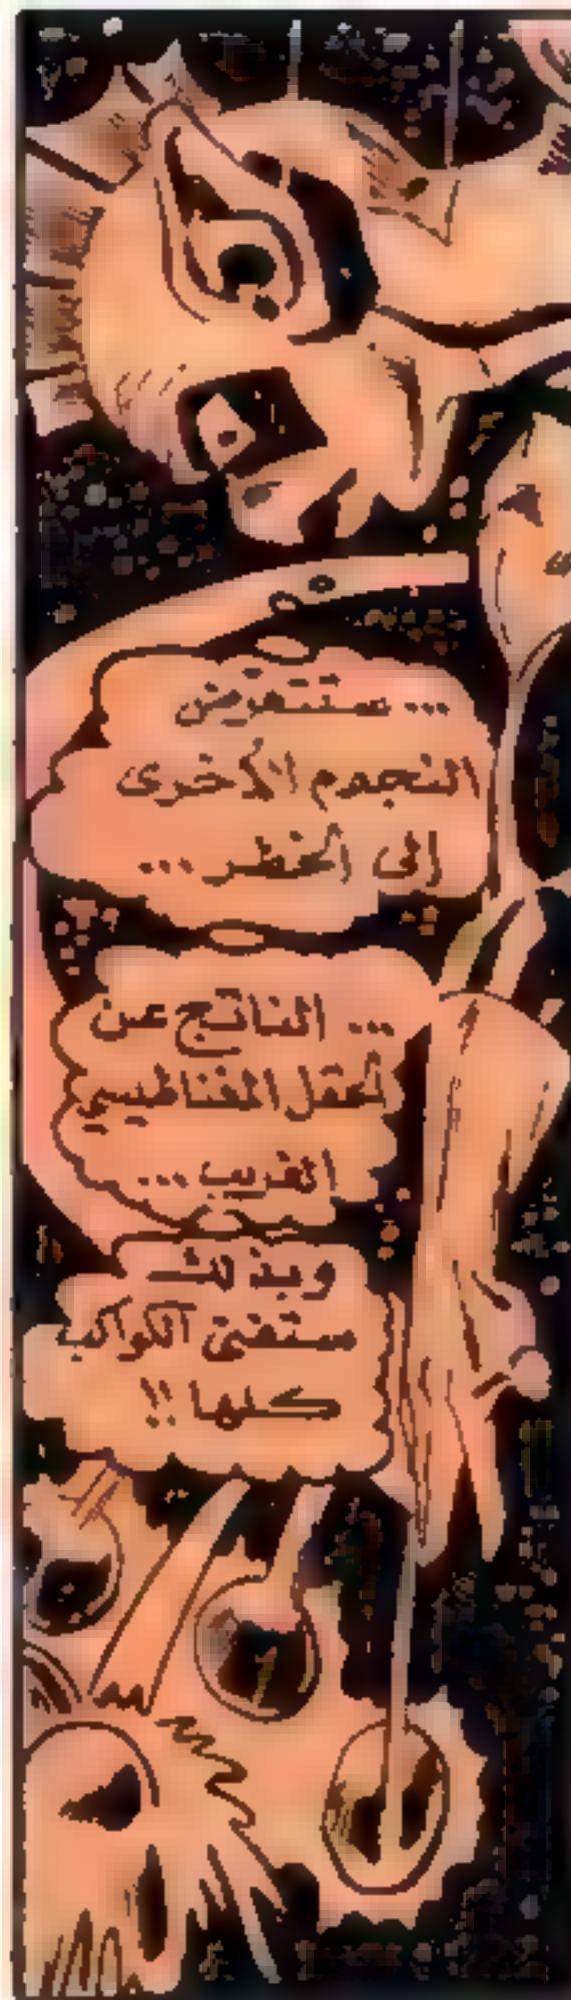 ... ستتعرض
النجوم الأخرى
إلى الخطر ...
... الناتج عن
الحقل المغناطيسي
الغريب ...
وبذلك
ستفنى الكواكب
كلها !!